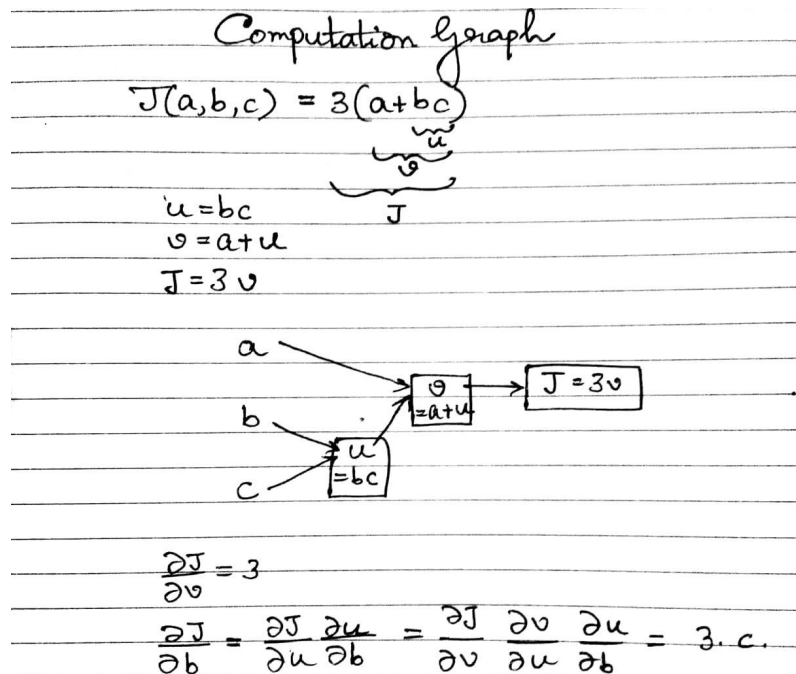 Computation Graph
J(a,b,c) = 3(a+bc)
u
v
J
u = bc
v = a+u
J = 3v
a
v
=a+u
J = 3v
b
u
=bc
c
∂J/∂v = 3
∂J/∂b = ∂J/∂u ∂u/∂b = ∂J/∂v ∂v/∂u ∂u/∂b = 3.c.